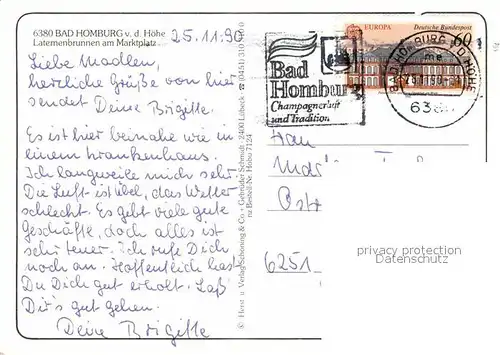 6380 BAD HOMBURG v. d. Höhe
Laternenbrunnen am Marktplatz
25.11.90
Liebe Madlen,
herzliche Grüße von hier
sendet Deine Brigitte.
Es ist hier beinahe wie in
einem Krankenhaus.
Ich langweile mich sehr.
Die Luft ist übel, das Wetter
schlecht. Es gibt viele gute
Geschäfte, doch alles ist
sehr teuer. Ich rufe Dich
noch an. Hoffentlich hast
Du Dich gut erholt. Laß
Dir's gut gehen.
Deine Brigitte
© Horst u. Verlag Schöning & Co. · Gebrüder Schmidt · 2400 Lübeck · ☎ (0451) 310
Bestell-Nr. Hobu 7124
Bad
Homburg
Champagnerluft
und Tradition
EUROPA Deutsche Bundespost
60
BAD HOMBURG V D HÖHE
638
6251
privacy protection
Datenschutz